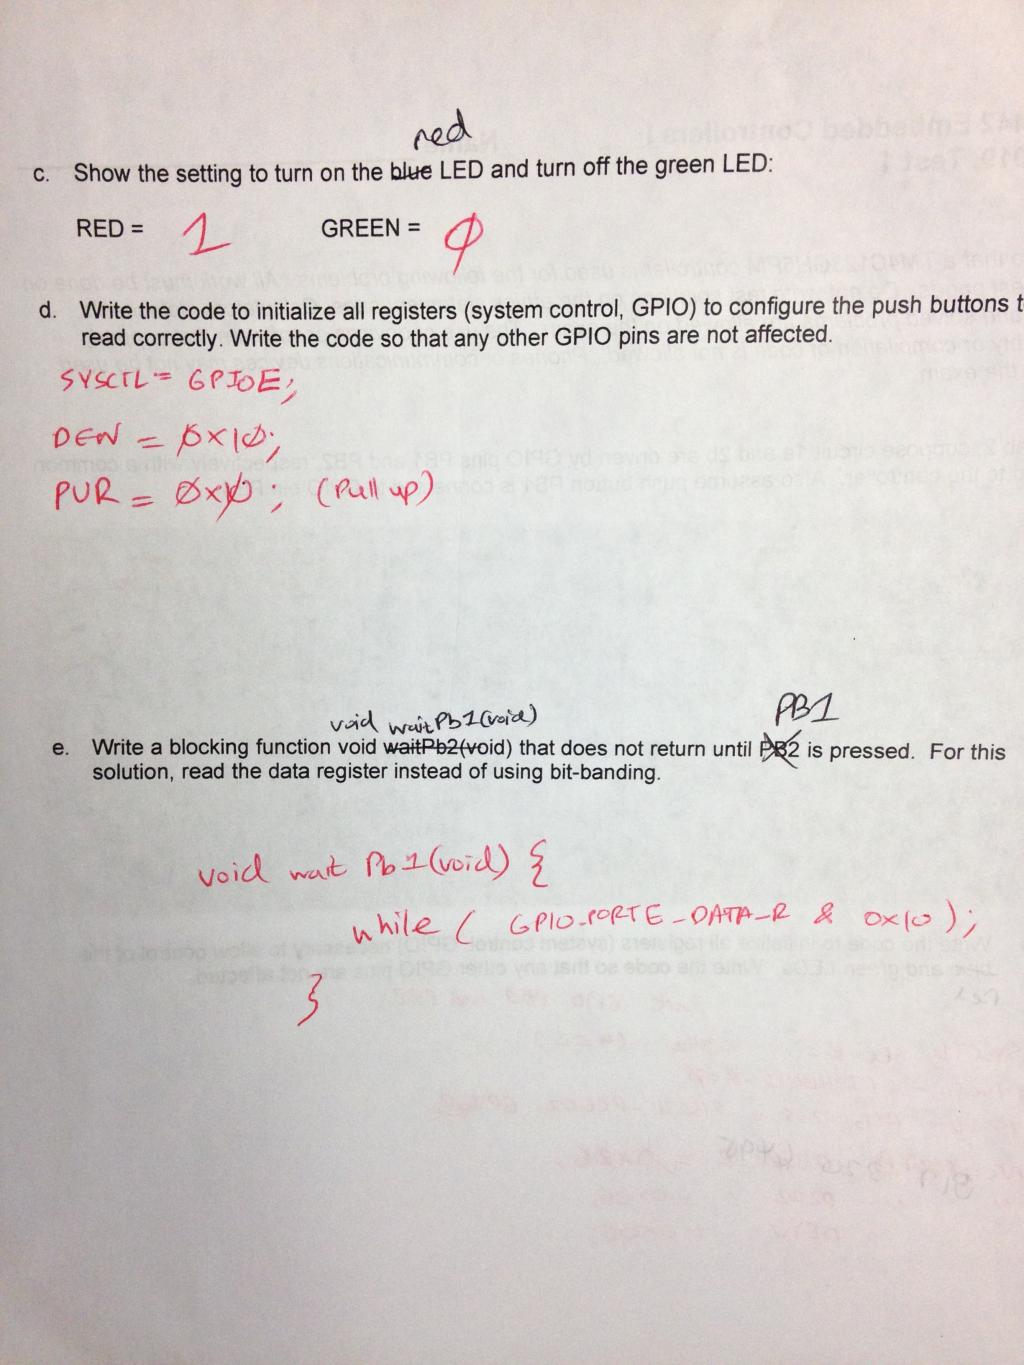 red
c. Show the setting to turn on the blue LED and turn off the green LED:
RED = 1 GREEN = 0
d. Write the code to initialize all registers (system control, GPIO) to configure the push buttons t
read correctly. Write the code so that any other GPIO pins are not affected.
SYSCTL = GPIOE;
DEN = 0x10;
PUR = 0x10; (Pull up)
void waitPb1(void) PB1
e. Write a blocking function void waitPb2(void) that does not return until PB2 is pressed. For this
solution, read the data register instead of using bit-banding.
void wait Pb1(void) {
while ( GPIO_PORTE_DATA_R & 0x10 );
}